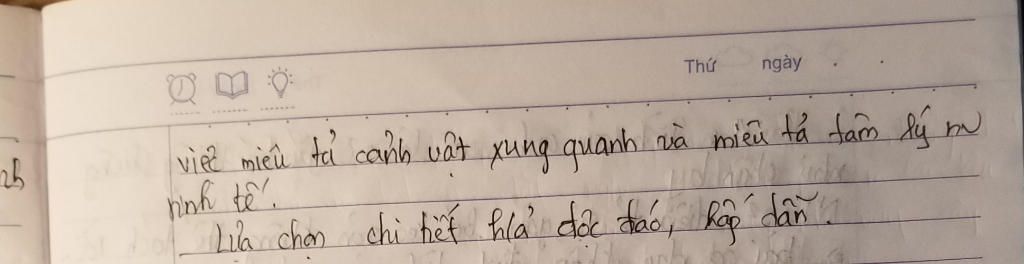 Thứ ngày
việc miêu tả cảnh vật xung quanh và miêu tả tâm lý
tinh tế.
Lựa chọn chi tiết khá độc đáo, hấp dẫn.